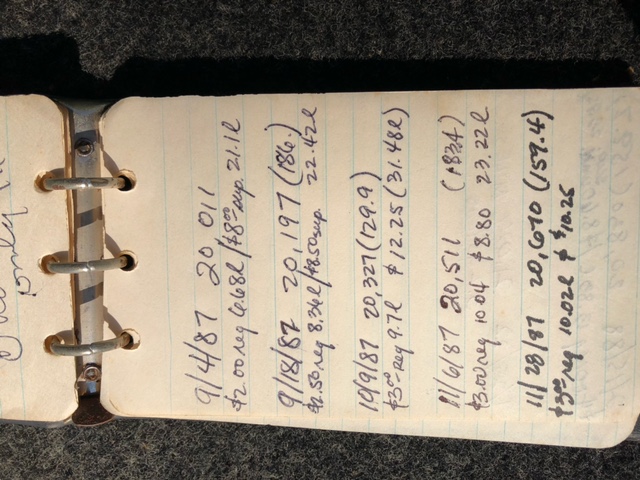 only
9/4/87 20 011
$2.00 reg 6.68l/$8.00 sup. 21.1l
9/18/87 20,197 (186.)
$2.50 reg 8.34l/$8.50 sup. 22.42l
10/9/87 20,327 (129.9)
$3.00 reg 9.7l $12.25 (31.48l)
11/6/87 20,511 (183.4)
$3.00 reg 10.04 $8.80 23.22l
11/28/87 20,670 (159.4)
$3.00 reg 10.02l $10.25